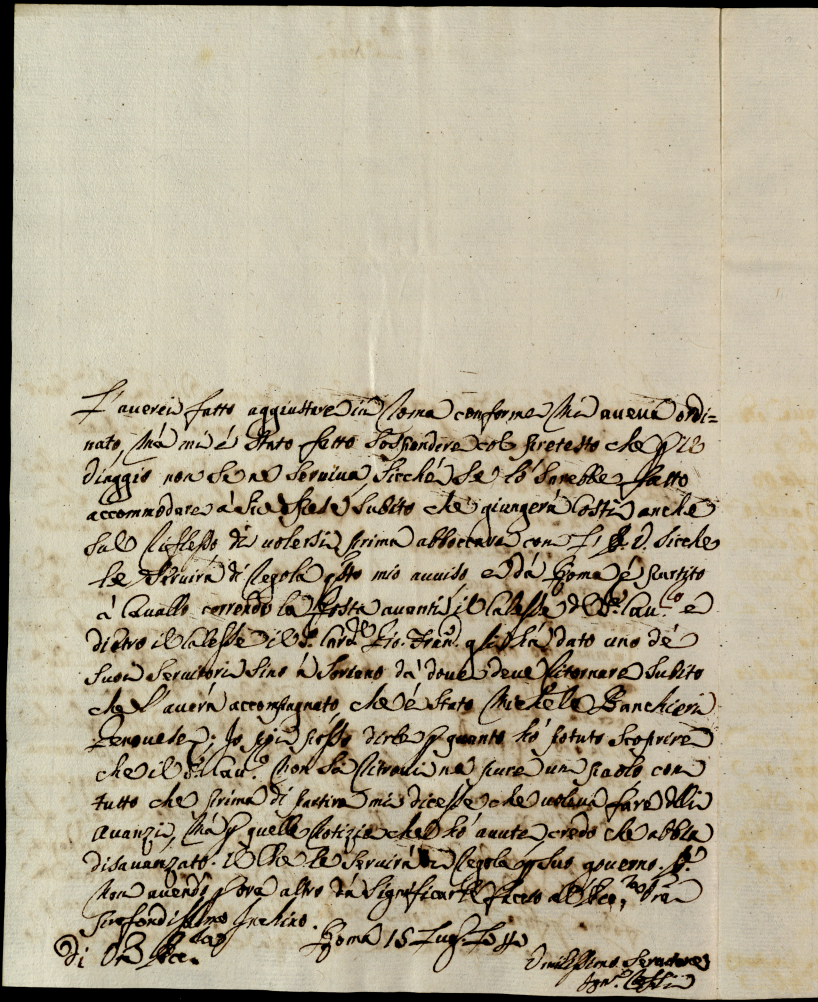 L'averei fatto aggiustare in Roma conforme Mi aveva ordi=
nato, Mà mi è stato fatto sospendere col pretesto che p il
Viaggio non se ne serviva, sicché se lo sarebbe fatto
accommodare à sue spese subito che giungerà costì, anche
sul riflesso di volersi prima abboccare con sicche
le servirà di regola qsto mio avviso, e dà Roma è partito
à Cavallo correndo la Posta avanti il Calesse del Sr Cavo e
dietro il Calesse il Sr Cardle Gio. Fran. gli hà dato uno de
suoi servitori sino à dà dove deve ritornare subito
che l'averà accompagnato, che è stato Michele Banchieri
Genovese; Io poi posso dirle p quanto hò potuto scoprire
che il Sr Cavo Non si ritrovi ne pure un paolo con
tutto che prima di partire mi dicesse che voleva fare delli
avanzi, Mà p quelle Notizie che hò avute credo che abbia
disavanzato. il che le servirà di regola p suo governo. E
Non avendo p ora altro dà significarle faccio all'
Profondissimo Inchino.
Di Roma 15 Lug.
Umilissimo Servitore